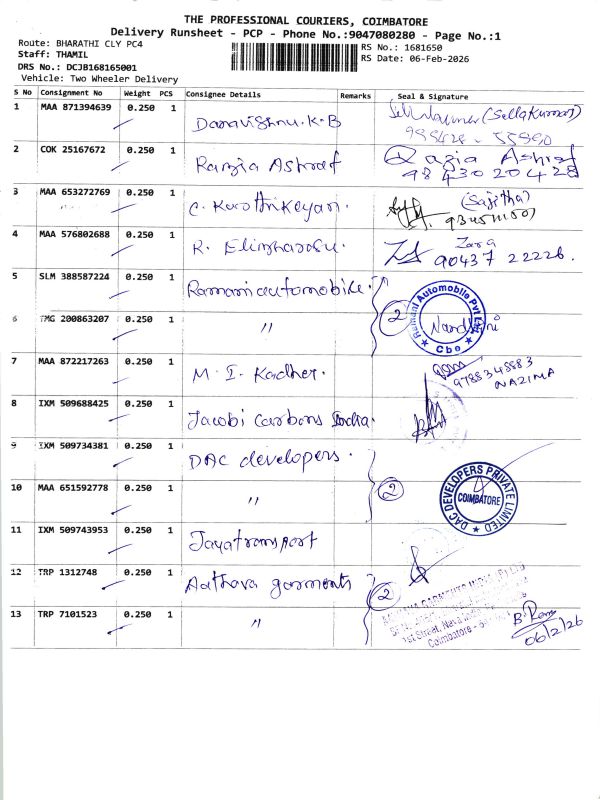 THE PROFESSIONAL COURIERS, COIMBATORE
Delivery Runsheet - PCP - Phone No.:9047080280 - Page No.:1
Route: BHARATHI CLY PC4
RS No.: 1681650
Staff: THAMIL
RS Date: 06-Feb-2026
DRS No.: DCJB168165001
Vehicle: Two Wheeler Delivery
S No Consignment No Weight PCS Consignee Details Remarks Seal & Signature
1 MAA 871394639 0.250 1 Danavishnu.K.B (Sella Kumar)
2 COK 25167672 0.250 1 Razia Ashraf Razia Ashraf
98430 20428
3 MAA 653272769 0.250 1 C. Karthikeyan. (Sajitha)
4 MAA 576802688 0.250 1 R. Elizharasu. Zara
90437 22226.
5 SLM 388587224 0.250 1 Ramaniautomobile. 2 Ramani Automobile Pvt Ltd
Cbe
6 TMG 200863207 0.250 1 " Nandhini
7 MAA 872217263 0.250 1 M. I. Kadher. 9788348883
NAZIMA
8 IXM 509688425 0.250 1 Jacobi Carbons India.
9 IXM 509734381 0.250 1 DAC developers.
10 MAA 651592778 0.250 1 " 2 DAC DEVELOPERS PRIVATE LIMITED
COIMBATORE
11 IXM 509743953 0.250 1 Jayatransport
12 TRP 1312748 0.250 1 Aathava garments 2
13 TRP 7101523 0.250 1 " 1st Street, Nava
Coimbatore
06/2/26